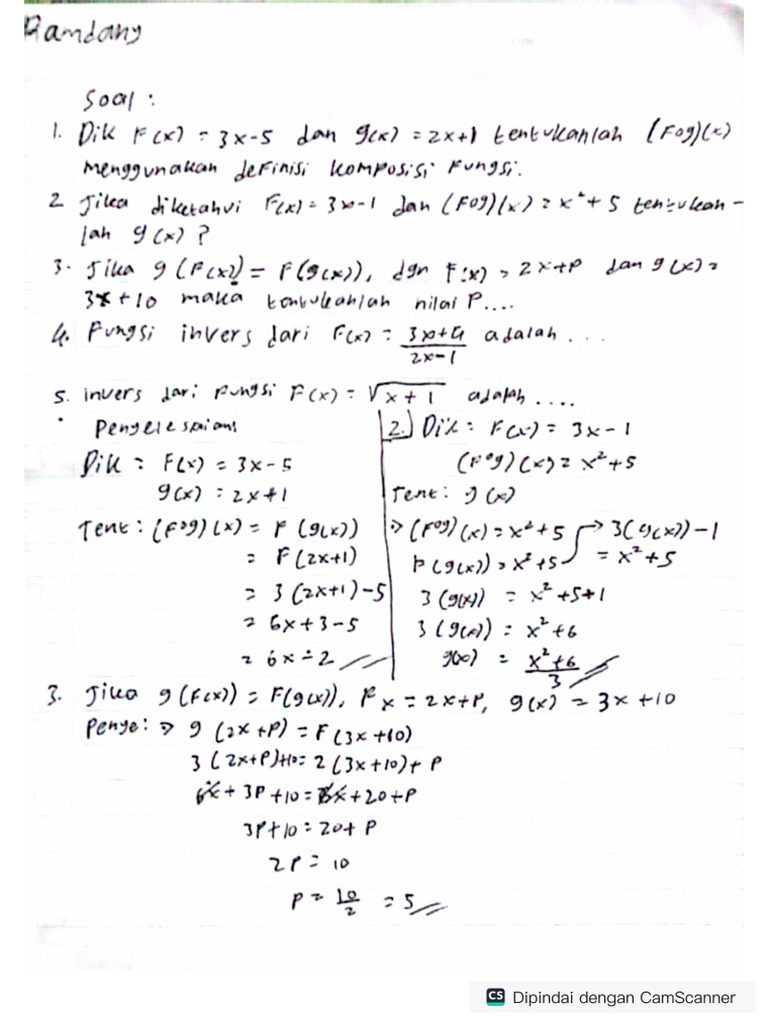 Ramdang
Soal :
1. Dik F(x) = 3x-5 dan g(x) = 2x+1 tentukanlah (Fog)(x)
menggunakan definisi komposisi Fungsi.
2 Jika diketahui F(x) = 3x-1 dan (Fog)(x) = x²+5 tentukan-
lah g(x) ?
3. Jika g(F(x)) = F(g(x)), dgn F(x) = 2x+P dan g(x) =
3x+10 maka tentukanlah nilai P....
4. Fungsi invers dari F(x) = (3x+4)/(2x-1) adalah ...
5. invers dari Fungsi F(x) = √(x+1) adalah ....
Penyelesaian
Dik : F(x) = 3x-5
g(x) = 2x+1
Tent : (Fog)(x) = F(g(x))
= F(2x+1)
= 3(2x+1)-5
= 6x+3-5
= 6x-2
2.) Dik : F(x) = 3x-1
(Fog)(x) = x²+5
Tent : g(x)
⇒ (Fog)(x) = x²+5 → 3(g(x))-1
F(g(x)) = x²+5 = x²+5
3(g(x)) = x²+5+1
3(g(x)) = x²+6
g(x) = (x²+6)/3
3. Jika g(F(x)) = F(g(x)), Fx = 2x+P, g(x) = 3x+10
Penye : ⇒ g(2x+P) = F(3x+10)
3(2x+P)+10 = 2(3x+10)+P
6x+3P+10 = 6x+20+P
3P+10 = 20+P
2P = 10
P = 10/2 = 5
CS Dipindai dengan CamScanner